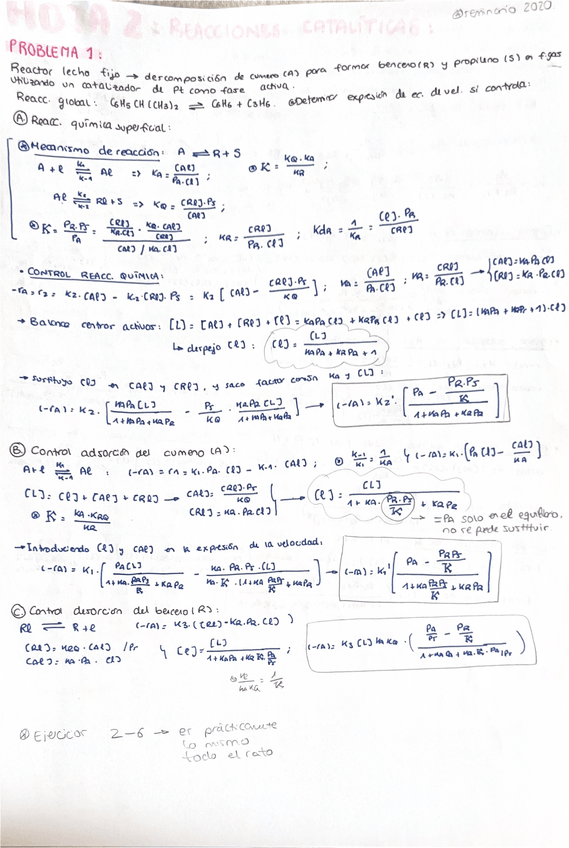 HOJA 2: REACCIONES CATALÍTICAS:
@reminario 2020
PROBLEMA 1:
Reactor lecho fijo → descomposición de cumeno (A) para formar benceno (R) y propileno (S) en f. gas
utilizando un catalizador de Pt como fase activa.
Reacc. global: C6H5CH(CH3)2 ⇌ C6H6 + C3H6. Determinar expresión de ec. de vel. si controla:
Ⓐ Reacc. química superficial:
Mecanismo de reacción: A ⇌ R+S
A + l ⇌ Al ⇒ KA = [Al] / PA·[l] ; K = KQ·KA / KR ;
Al ⇌ Rl + S ⇒ KQ = [Rl]·PS / [Al] ;
K = PR·PS / PA ; KR = [Rl] / PR·[l] ; KdR = 1/KR = [l]·PR / [Rl]
• CONTROL REACC. QUÍMICA:
-rA = r2 = K2·[Al] - K-2·[Rl]·PS = K2 [ [Al] - [Rl]·PS / KQ ] ; KA = [Al] / PA·[l] ; KR = [Rl] / PR·[l] → { [Al] = KA·PA·[l] [Rl] = KR·PR·[l]
→ Balance centros activos: [L] = [Al] + [Rl] + [l] = KAPA[l] + KRPR[l] + [l] ⇒ [L] = (KAPA + KRPR + 1)·[l]
↳ despejo [l]: [l] = [L] / KAPA + KRPR + 1
→ Sustituyo [l] en [Al] y [Rl], y saco factor común KA y [L]:
(-rA) = K2· [ KAPA[L] / 1+KAPA+KRPR - PS / KQ · KRPR[L] / 1+KAPA+KRPR ] → (-rA) = K2'· [ PA - PR·PS / K / 1+KAPA+KRPR ]
Ⓑ Control adsorción del cumeno (A):
A + l ⇌ Al : (-rA) = r1 = K1·PA·[l] - K-1·[Al] ; K-1 / K1 = 1 / KA ↳ (-rA) = K1·[PA[l] - [Al] / KA]
[L] = [l] + [Al] + [Rl] → [Al] = [Rl]·PS / KQ [Rl] = KR·PR·[l] } → [l] = [L] / 1 + KA·PR·PS / K + KRPR
K = KA·KRQ / KR
→ = PA solo en el equilibrio,
no se puede sustituir
→ Introduciendo [l] y [Al] en la expresión de la velocidad:
(-rA) = K1·[ PA[L] / 1+KA PRPS / K + KRPR - KA·PR·PS·[L] / KA·K·(1+KA PRPS / K + KRPR) ] → (-rA) = K1' [ PA - PRPS / K / 1+KA PRPS / K + KRPR ]
Ⓒ Control desorción del benceno (R):
Rl ⇌ R + l (-rA) = K3·([Rl] - KR·PR·[l])
[Rl] = KRQ·[Al] / PS
[Al] = KA·PA·[l] ↳ [l] = [L] / 1+KAPA + KR·K·PA / PS ; (-rA) = K3[L]KAKQ·( PA / PS - PR / K / 1+KAPA + KR·K·PA/PS )
KR / KAKQ = 1 / K
Ejercicios 2-6 → es prácticamente
lo mismo
todo el rato